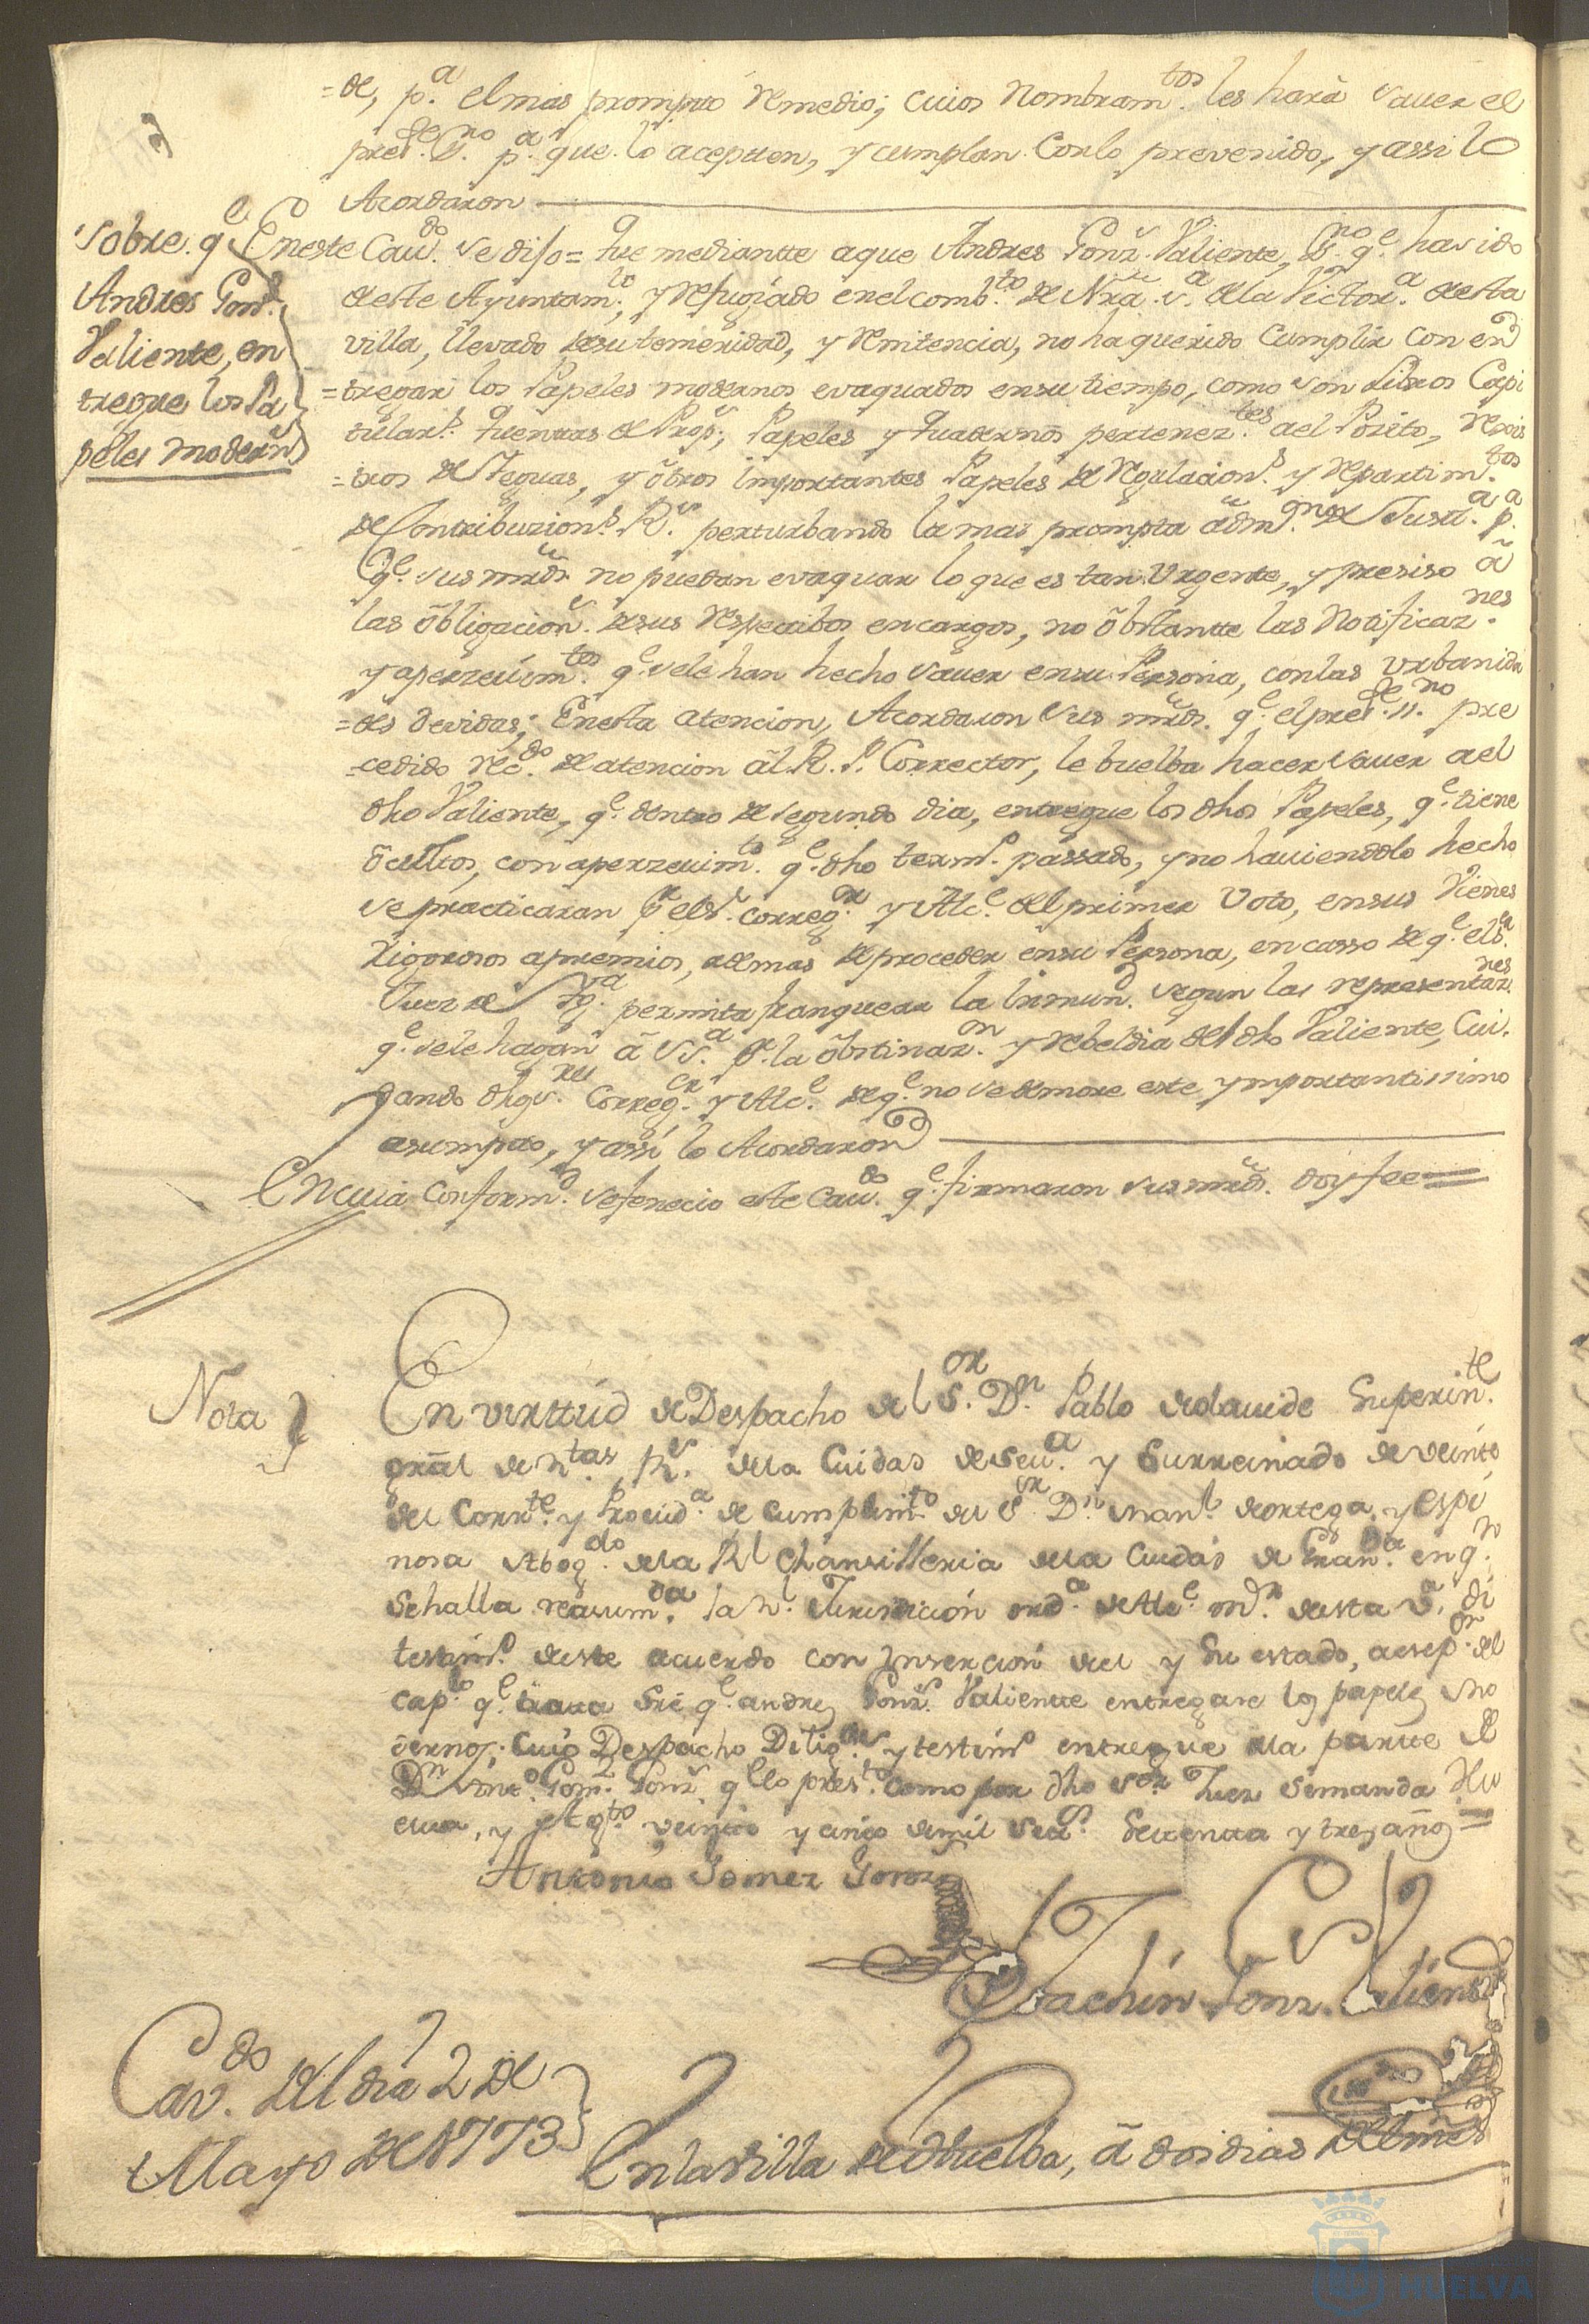 =de, p.ª el mas prompto remedio; cuios Nombram.tos les hará saver el
pres.te S.no p.ª que lo acepten, y cumplan con lo prevenido, y assi lo
Acordaron
Sobre q.e
Andres Gonz.
Valiente, en
tregue los Pa
peles modern.s
En este Cav.do se dijo = Que mediantte a que Andres Gonz.s Valiente, S.no q.e ha sido
de este Ayuntam.to, y refugiado en el comb.to de Nrã. S.ª de la Victor.ª de esta
villa, llevado de su temeridad, y renitencia, no ha querido cumplir con en
=tregar los Papeles modernos evaquados en su tiempo, como son Libros Capi
tular.s Quentas de Prop.s, Papeles y Quadernos pertenez.tes a el Posito, regis
=tros de Yeguas, y õtros importantes Papeles de regulacion.s y repartim.tos
de Contribuzion.s R.s perturbando la mas prompta adm.on de Just.ª p.ª
q.e sus mrds. no puedan evaquar lo que es tan Urgente, y presiso ã
las õbligacion.s de sus respectibos encargos, no õbstantte las Notificaz.nes
y aperzevim.tos q.e se le han hecho saver en su Persona, con las urbanida
=des devidas; En esta atencion, Acordaron sus mrds. q.e el pres.te S.no pre
=cedido rec.do de atencion ãl R. P. Corrector, le buelba hacer saver a el
dho Valiente, q.e dentro de segundo dia, entregue los dhos Papeles, q.e tiene
õcultos, con aperzevim.to q.e dho term.o passado, y no haviendolo hecho
se practicaran p.r el S.r Correg.or y Alc.e del primer Voto, en sus Vienes
rigorosos apremios, ademas de proceder en su Persona, en casso de q.e el S.r
Juez de Yg.ª permita franquear la inmun.d segun las representaz.nes
q.e se le hagan ã S.S.ª p.r la õbstinaz.on y rebeldia del dho Valiente, Cui
dando dhos S.res Correg.or y Alc.e de q.e no se demore este ymportantissimo
asumpto, y assi lo Acordaron
En cuia conform.d se fenecio este Cav.do q.e firmaron sus mrds. doy fee =
Nota
En virttud de Despacho del S.or D.n Pablo de Olavide Superin.te
gral de R.tas R.s de la Ciudad de Sev.ª y su Reinado de veinte
del Corr.te y Provid.ª de cumplim.to del S.or D.n Man.l de Ortega, y Espi
nosa Abog.do de la R.l Chansilleria de la Ciudad de Gran.da en q.n
se halla reasum.da la R.l Jurisdicion ord.ª de Alc.e m.or de esta v.ª, di
testim.o de este acuerdo con Insercion del y su estado, a esep.on del
cap.lo q.e trata sre q.e Andres Gonz.s Valientte entregase los papeles mo
dernos; cuio Despacho Dilig.as y testim.o entregue a la partte de
D.n Vinc.te Gom.z Gonz.s q.e lo pres.to como por dho S.or Juez se manda Hu
elva, y Ag.to veinte y cinco de mil setec.s settenta y tres años =
Antonio Gomez Gonz.
Joachin Gonz. Valiente
Cav.do del dia 2 de
Mayo de 1773
En la Villa de Huelba, ã dos dias del mes
HUELVA